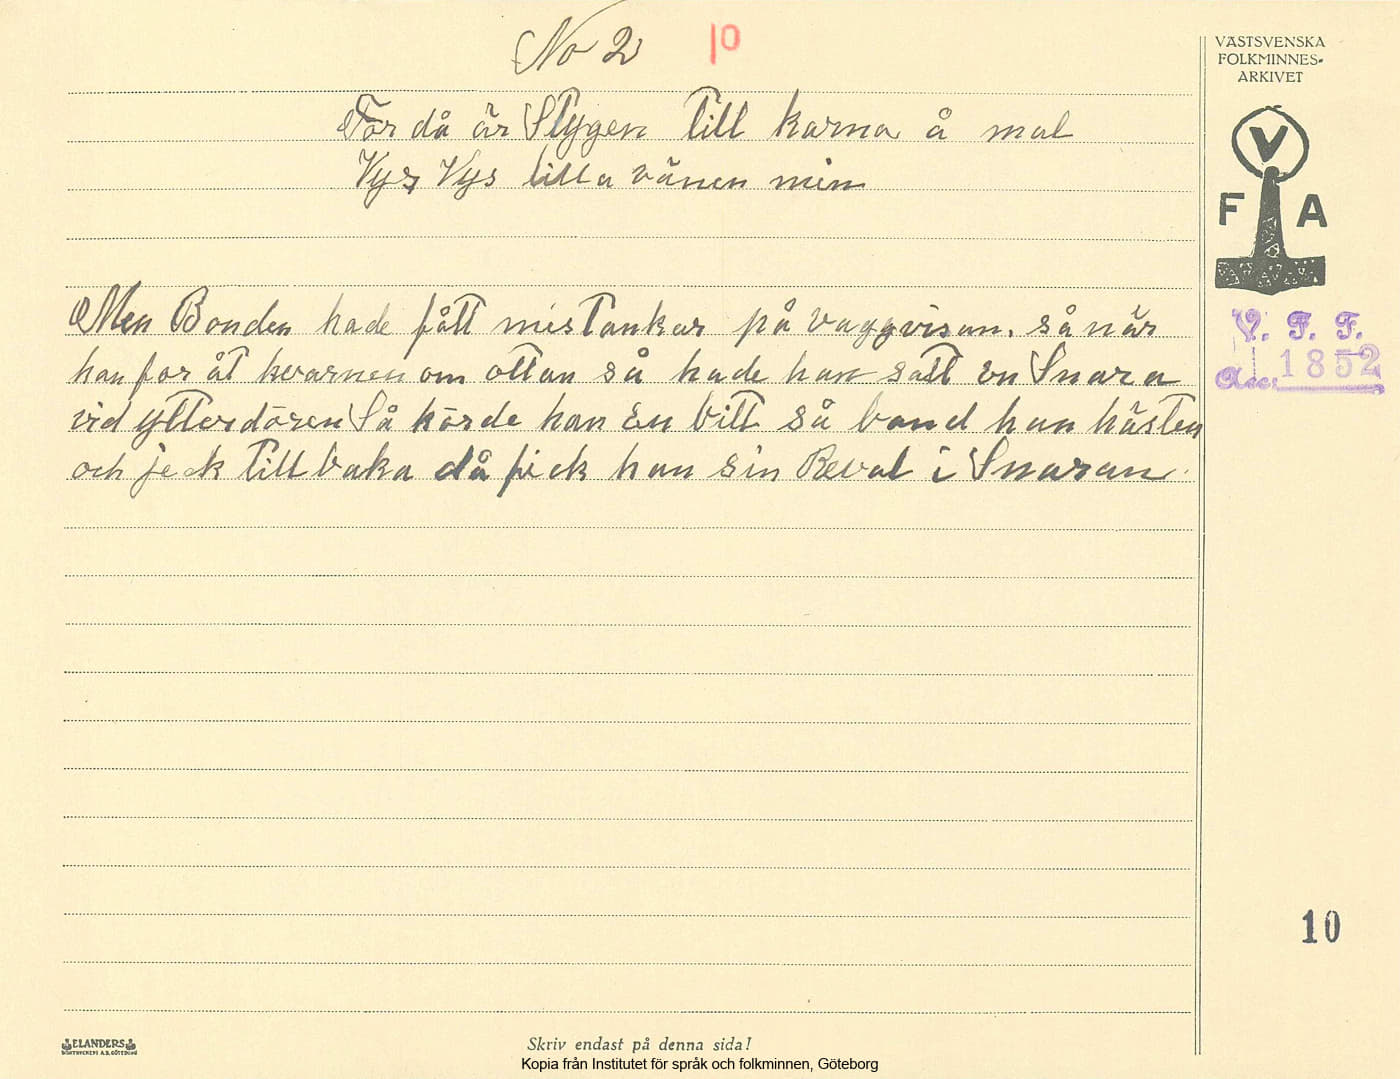 No 2 10
För då är Stygen till karna å mal
Vys Vys lilla vänen min
Men Bonden hade fått mistankar på vaggvisan. så när
han for åt kvarnen om ottan så hade han satt en Snara
vid ytterdören Så körde han En bitt så band han hästen
och jeck tillbaka då fick han sin Reval i Snaran
VÄSTSVENSKA
FOLKMINNES-
ARKIVET
V
F A
V. F. F.
Acc. 1852
10
ELANDERS
BOKTRYCKERI A.B. GÖTEBORG
Skriv endast på denna sida!
Kopia från Institutet för språk och folkminnen, Göteborg